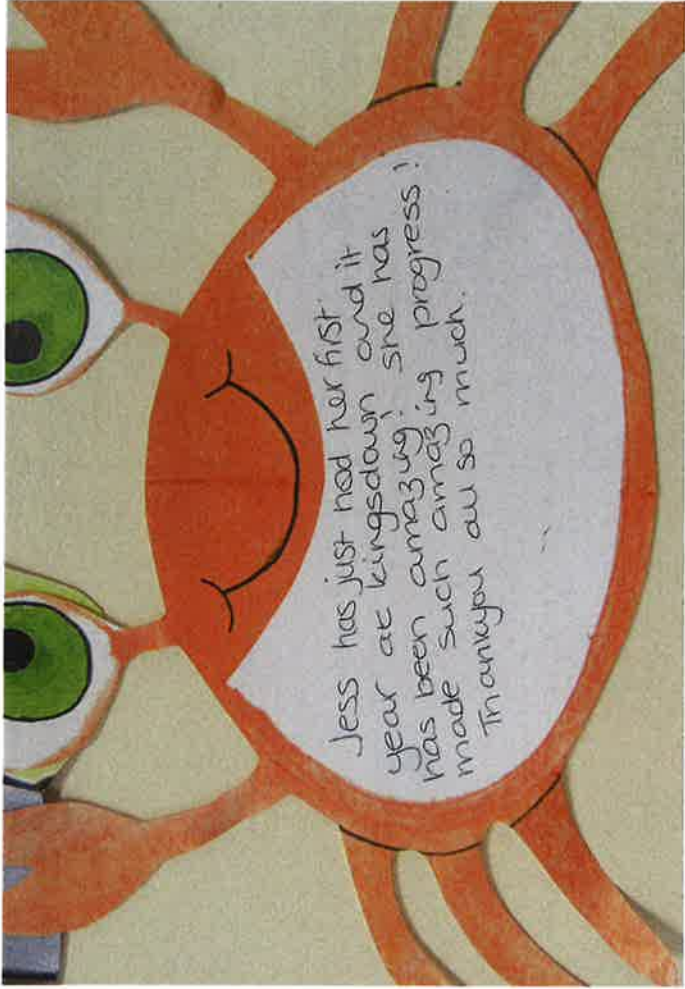 Jess has just had her first
year at kingsdown and it
has been amazing! she has
made such amazing progress!
Thankyou all so much.